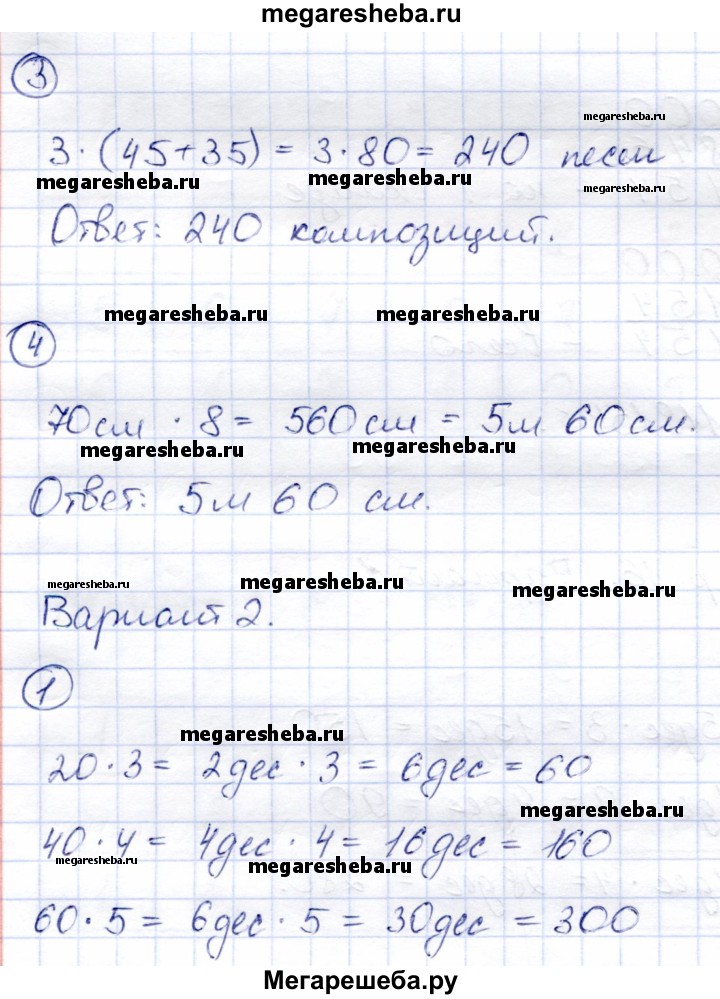 megaresheba.ru
3
megaresheba.ru
3 · (45+35) = 3 · 80 = 240 песен
megaresheba.ru megaresheba.ru megaresheba.ru
Ответ: 240 композиций.
megaresheba.ru megaresheba.ru
4
70см · 8 = 560см = 5м 60см.
megaresheba.ru megaresheba.ru
Ответ: 5м 60 см.
megaresheba.ru megaresheba.ru megaresheba.ru
Вариант 2.
1
megaresheba.ru
20 · 3 = 2дес · 3 = 6дес = 60
megaresheba.ru
40 · 4 = 4дес · 4 = 16дес = 160
megaresheba.ru megaresheba.ru
60 · 5 = 6дес · 5 = 30дес = 300
Мегарешеба.ру